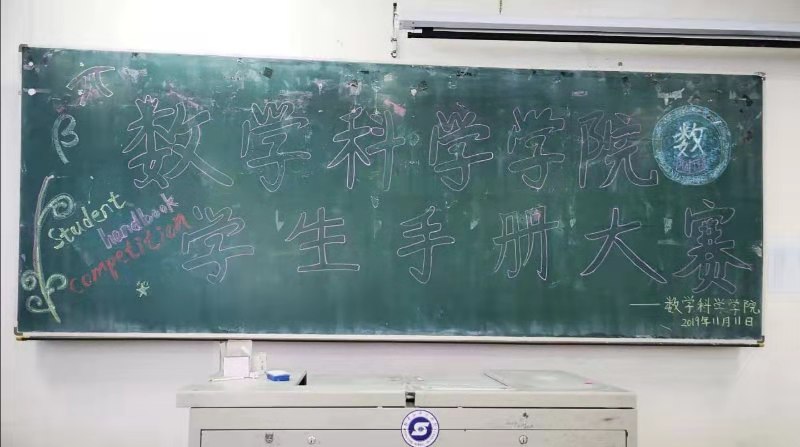 π
β
数学科学学院
数
Student
handbook
competition
学生手册大赛
——数学科学学院
2019年11月11日